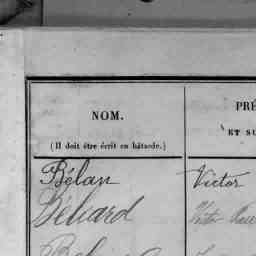 NOM.
PRÉ
(Il doit être écrit en bâtarde.)
ET SU
Bélan
Victor
Béliard
Victor